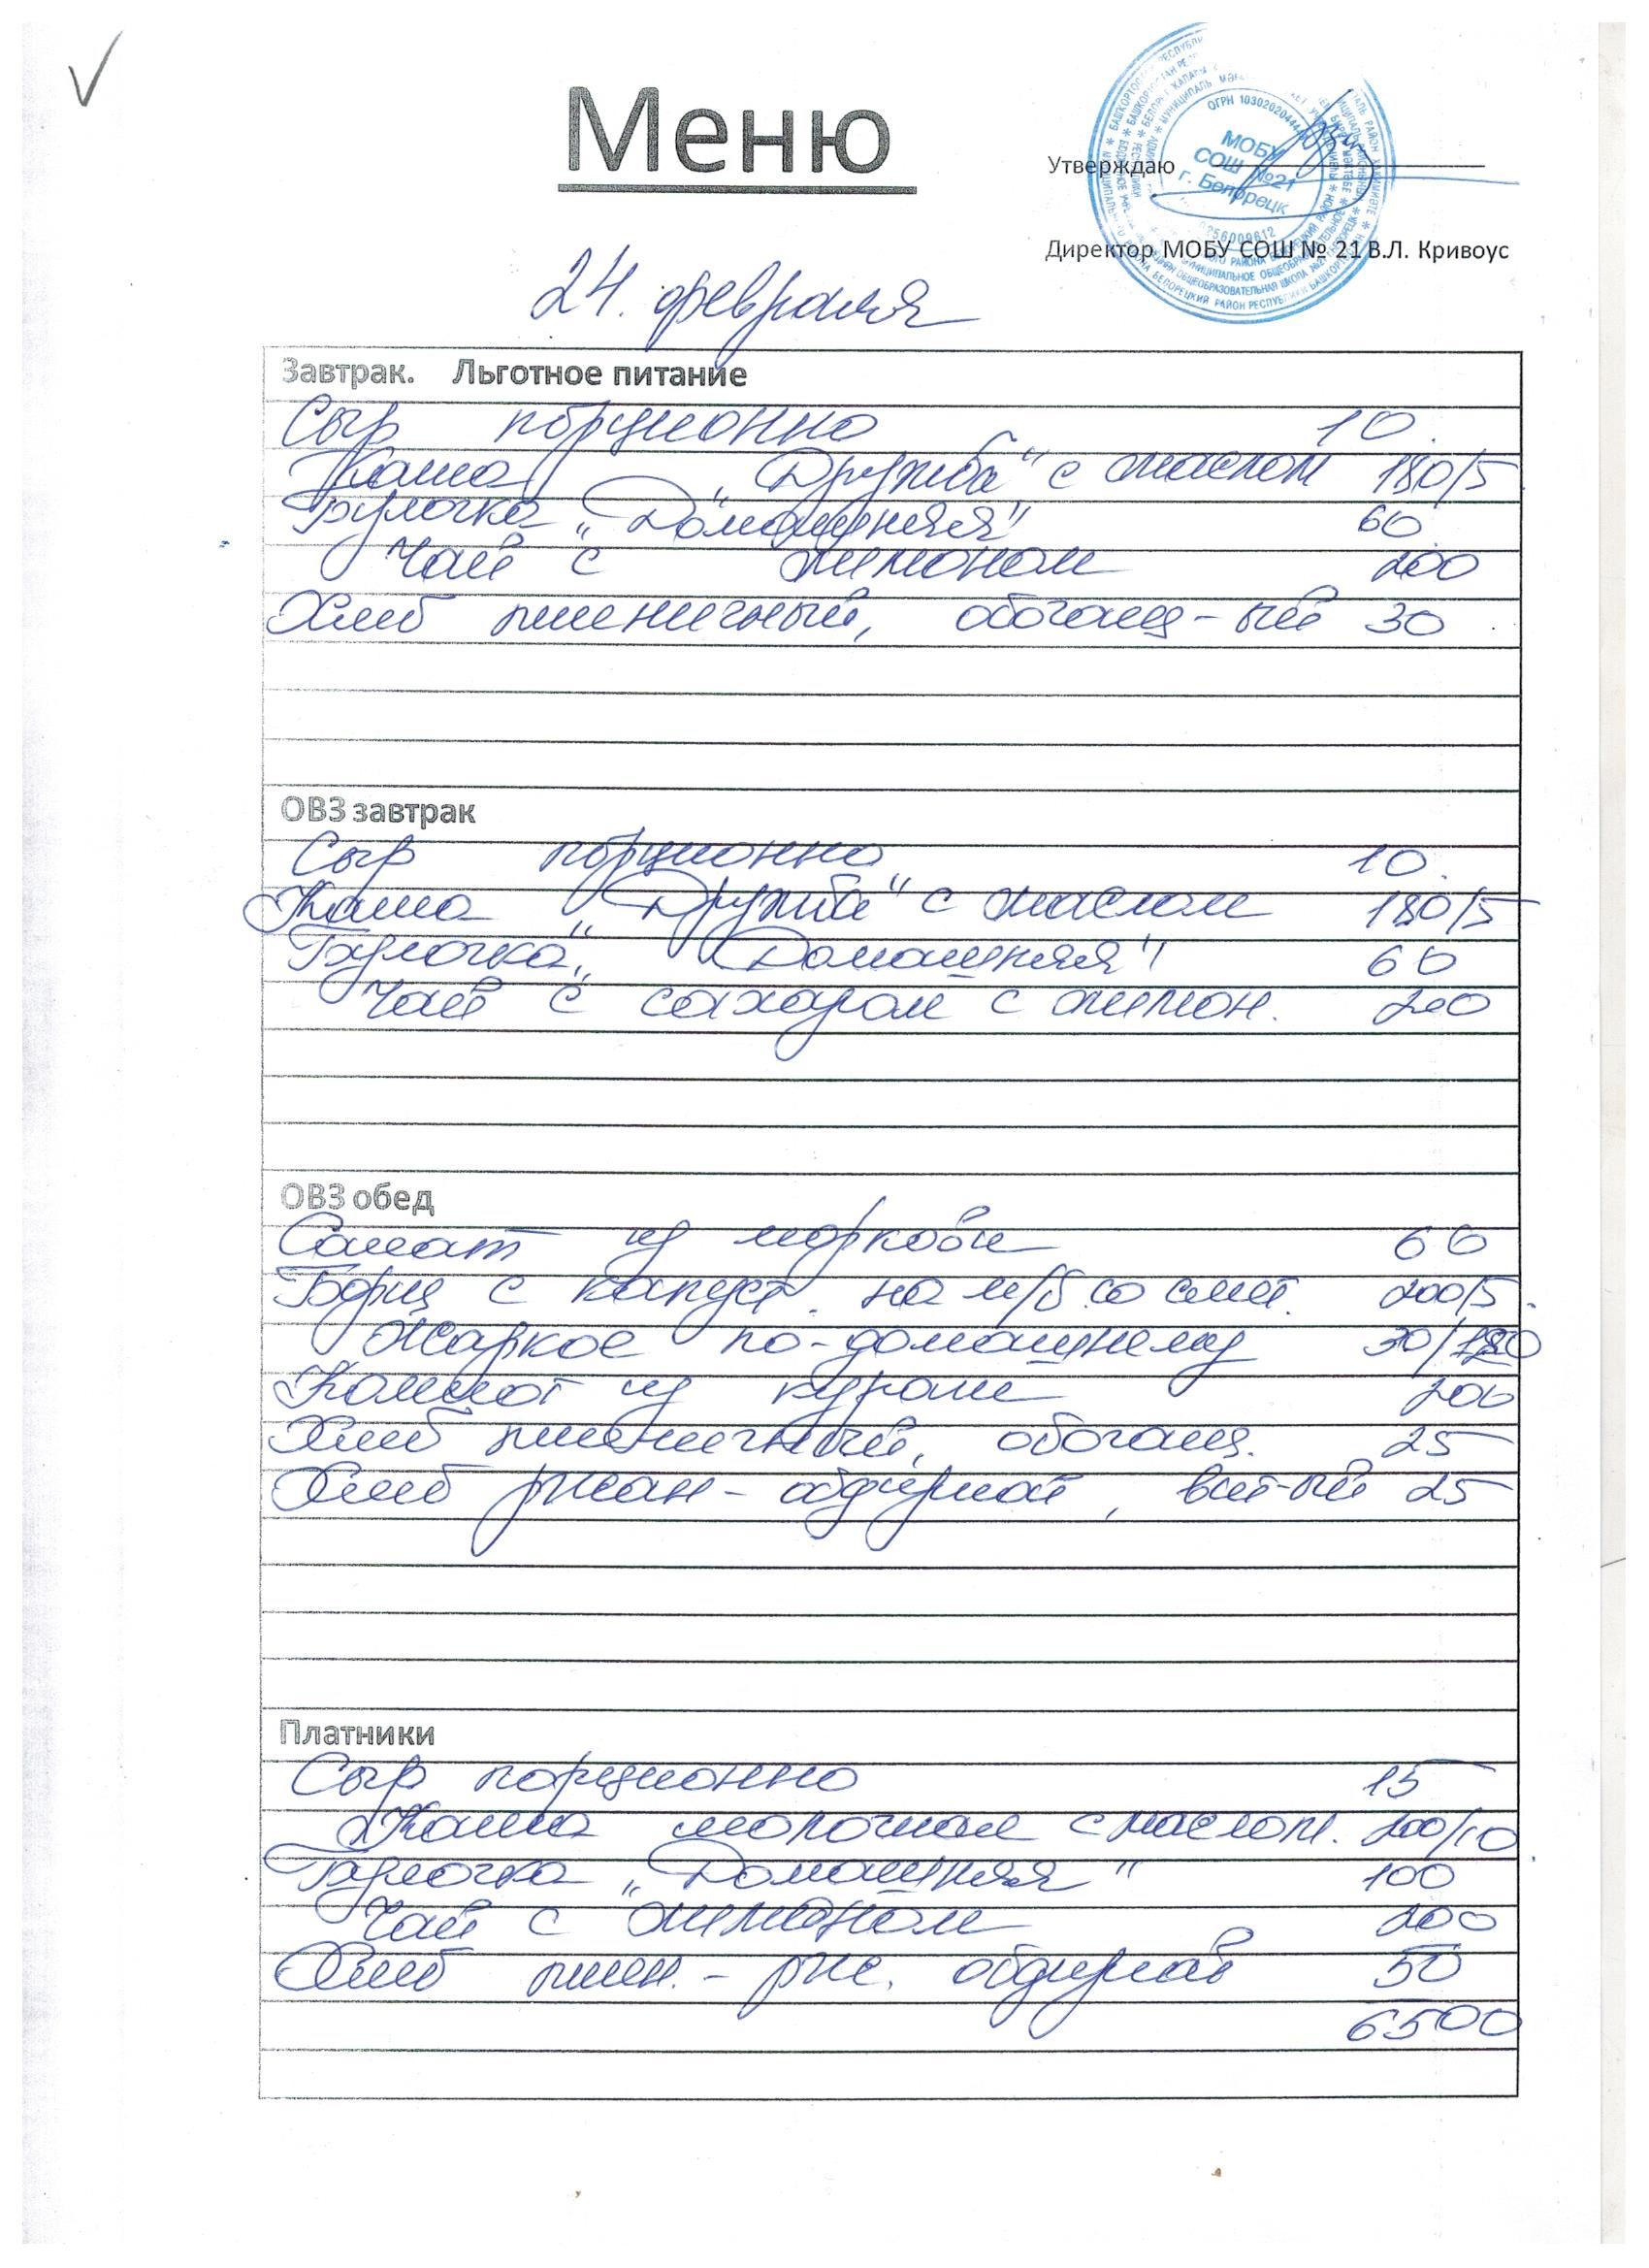 Меню
Утверждаю
МОБУ
СОШ №21
г. Белорецк
Директор МОБУ СОШ № 21 В.Л. Кривоус
24. февраля
Завтрак. Льготное питание
Сыр порционно 10.
Каша „Дружба" с маслом 180/5
Булочка „Домашняя" 60
Чай с лимоном 200
Хлеб пшеничный, обогащ-ый 30
ОВЗ завтрак
Сыр порционно 10.
Каша „Дружба" с маслом 180/5
Булочка „Домашняя" 60
Чай с сахаром с лимон. 200
ОВЗ обед
Салат из моркови 60
Борщ с капуст. на м/б со смет. 200/5.
Жаркое по-домашнему 30/120
Компот из кураги 200
Хлеб пшеничный, обогащ. 25
Хлеб ржан-обдирной, вит-ый 25
Платники
Сыр порционно 15
Каша молочная с маслом. 200/10
Булочка „Домашняя" 100
Чай с лимоном 200
Хлеб пшен.-рж. обдирной 50
6500